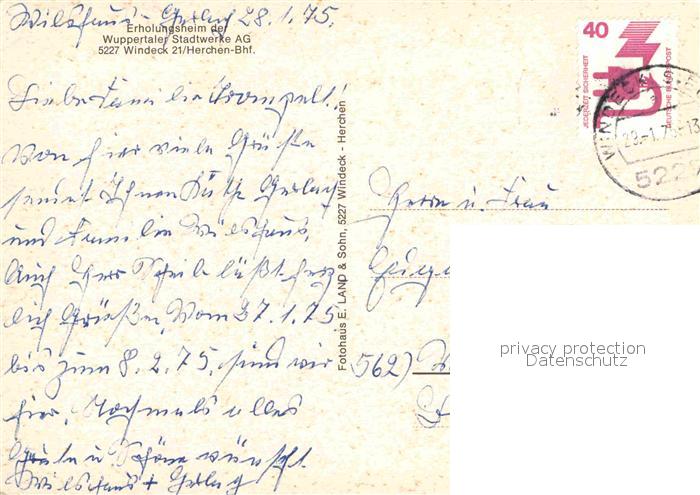 Wilshaus - Gerlach 28.1.75.
Erholungsheim der
Wuppertaler Stadtwerke AG
5227 Windeck 21/Herchen-Bhf.
Liebe Familie Trompelt!
Von hier viele Grüße
sendet Ihnen Käthe Gerlach
und Familie Wilshaus.
Auch Herr Scheib läßt herz
lich Grüßen. Vom 27.1.75
bis zum 8.2.75. sind wir
hier. Nochmals alles
Gute u Schöne wünscht
Wilshaus + Gerlach
Fotohaus E. LAND & Sohn, 5227 Windeck - Herchen
40
JEDERZEIT SICHERHEIT
DEUTSCHE BUNDESPOST
WINDECK
28.-1.75-13
5227
Herrn u. Frau
562)
privacy protection
Datenschutz